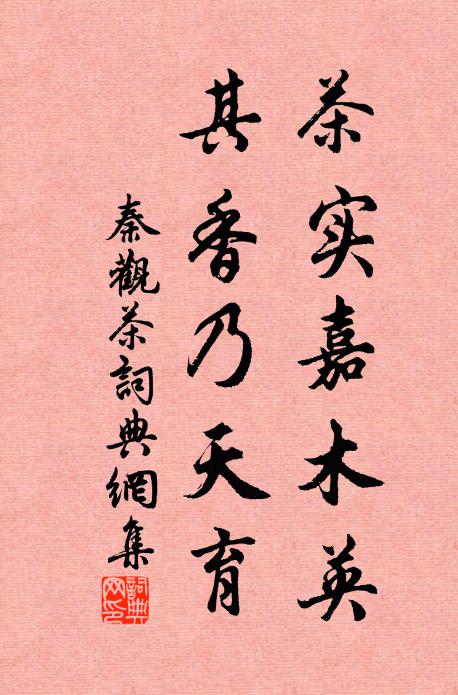 茶实嘉木英
其香乃天育
秦觀茶詞典網集
詞典網印